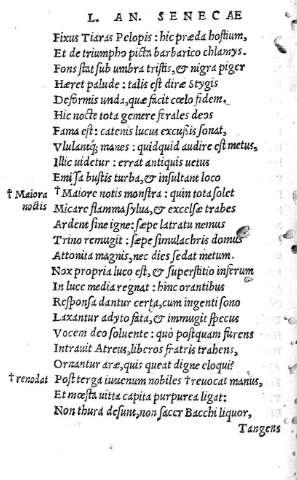 L. AN. SENECAE
Fixus Tiaras Pelopis: hic præda hostium,
Et de triumpho picta barbarico chlamys.
Fons stat sub umbra tristis, & nigra piger
Hæret palude: talis est diræ Stygis
Deformis unda, quæ facit cœlo fidem.
Hic nocte tota gemere ferales deos
Fama est: catenis lucus excussis sonat,
Vlulantq; manes: quidquid audire est metus,
Illic uidetur: errat antiquis uetus
Emissa bustis turba, & insultant loco
†Maiora †Maiore notis monstra: quin tota solet
noctis Micare flamma sylua, & excelsæ trabes
Ardent sine igne: sæpe latratu nemus
Trino remugit: sæpe simulachris domus
Attonita magnis, nec dies sedat metum.
Nox propria luco est, & superstitio inferum
In luce media regnat: hinc orantibus
Responsa dantur certa, cum ingenti sono
Laxantur adyto fata, & immugit specus
Vocem deo soluente: quò postquam furens
Intrauit Atreus, liberos fratris trahens,
Ornantur aræ, quis queat digne eloqui?
†renodat Post terga iuuenum nobiles †reuocat manus,
Et mœsta uitta capita purpurea ligat:
Non thura desunt, non sacer Bacchi liquor,
Tangens